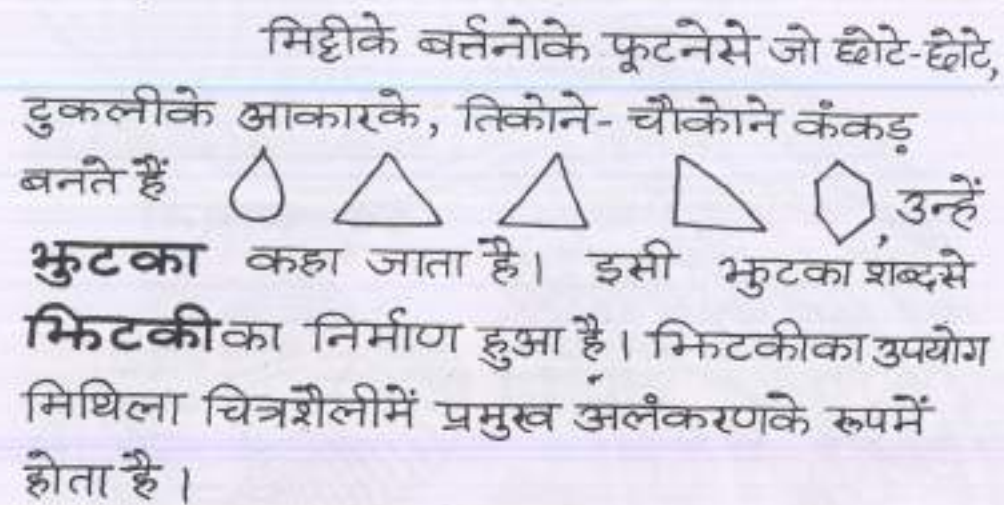 मिट्टीके बर्त्तनोके फूटनेसे जो छोटे-छोटे,
टुकलीके आकारके, तिकोने-चौकोने कंकड़
बनते हैं , उन्हें
झुटका कहा जाता है। इसी झुटका शब्दसे
झिटकीका निर्माण हुआ है। झिटकीका उपयोग
मिथिला चित्रशैलीमें प्रमुख अलंकरणके रूपमें
होता है।